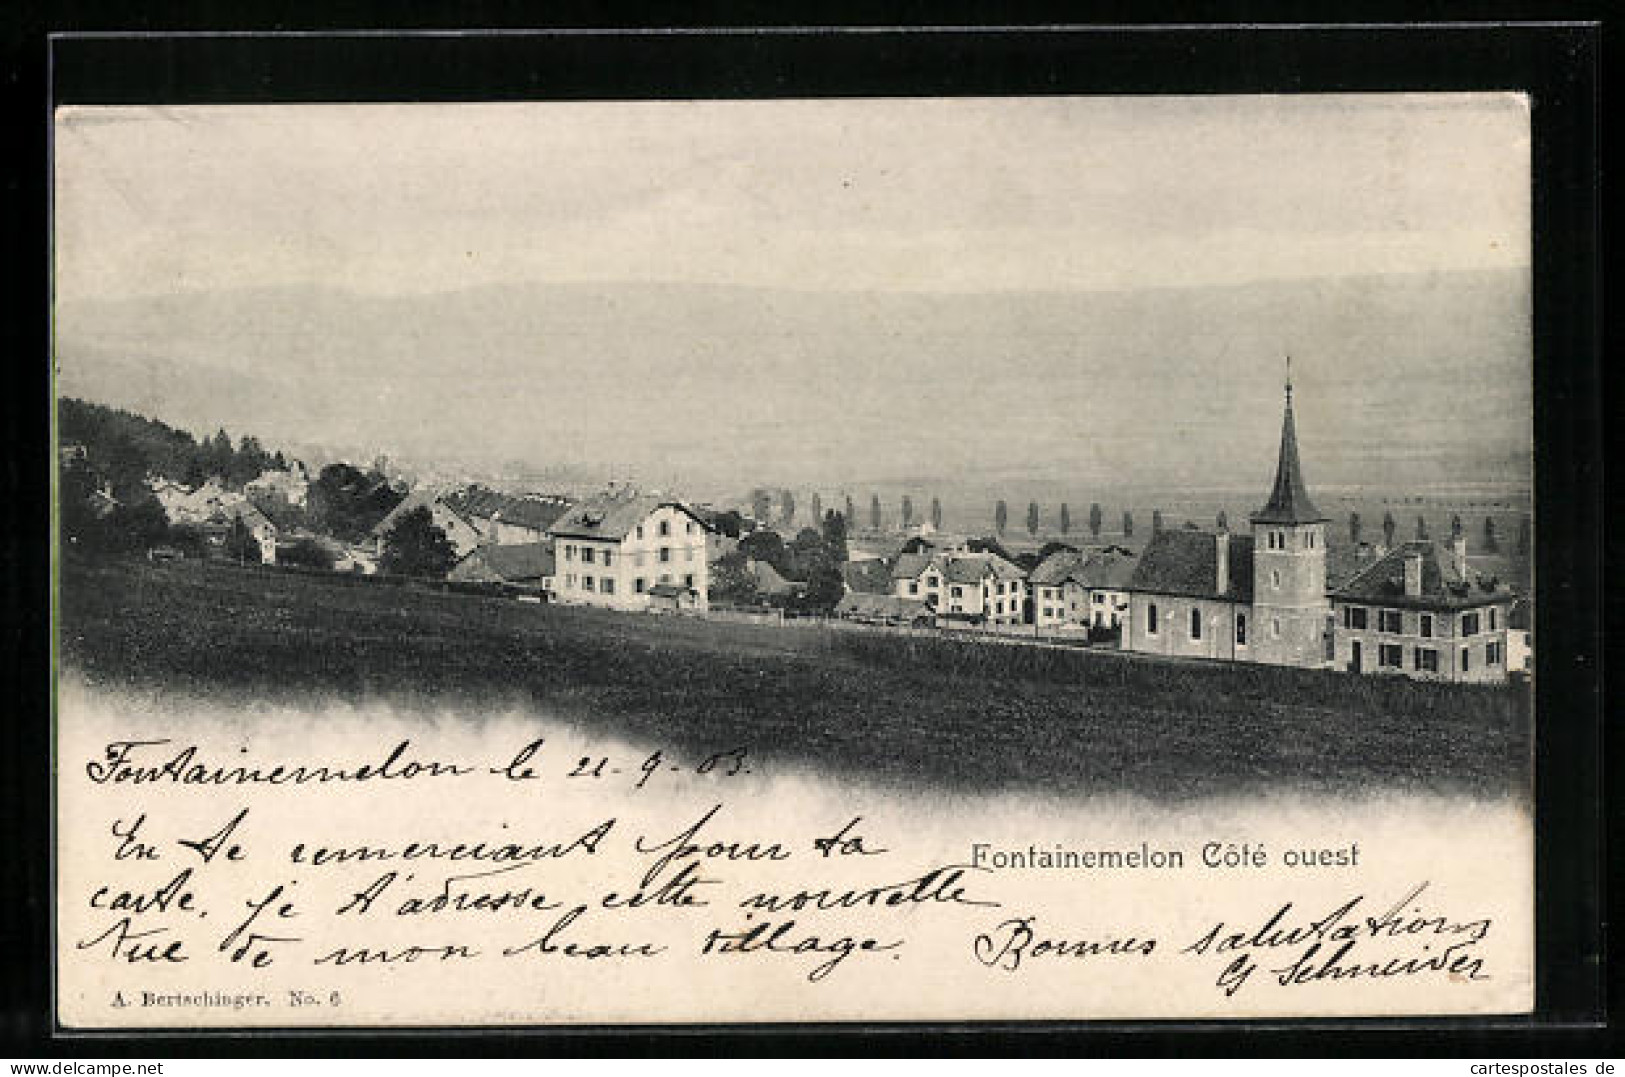 Fontainemelon le 21-9-03.
En te remerciant pour ta
carte, je t'adresse cette nouvelle
Vue de mon beau village.
Fontainemelon Côté ouest
Bonnes salutations
G Schneider
A. Bertschinger. No. 6
cartespostales de